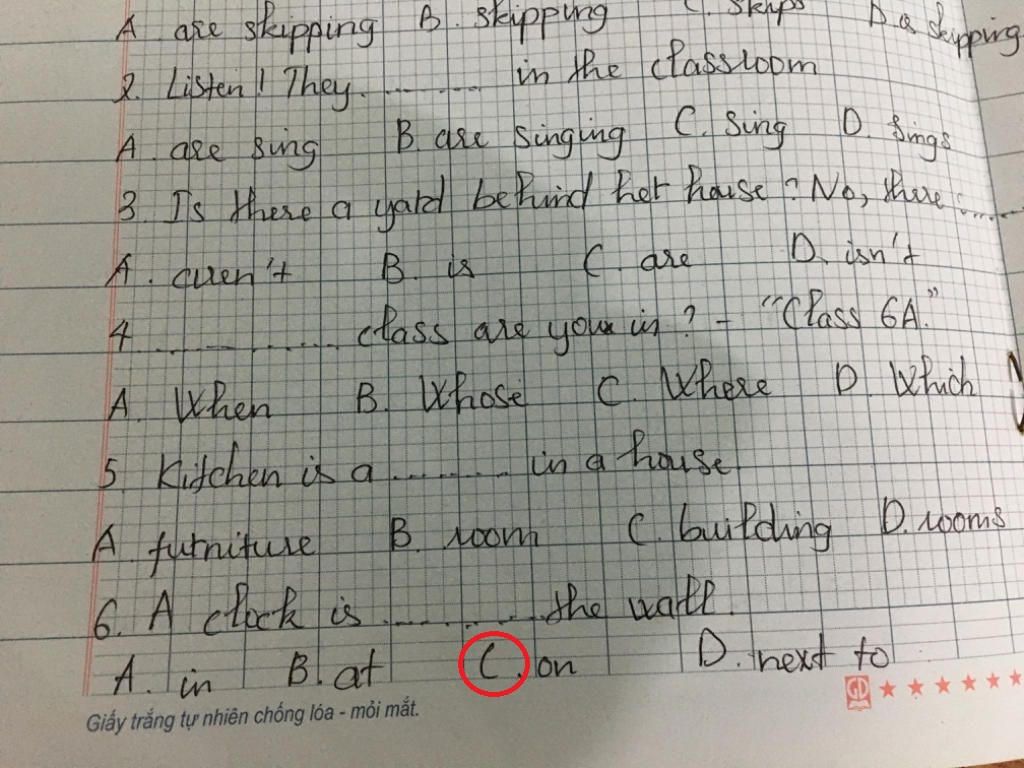 A. are skipping B. skipping C. skips D. is skipping
2. Listen! They ......... in the classroom
A. are sing B. are singing C. Sing D. Sings
3. Is there a yard behind her house? No, there .........
A. aren't B. is C. are D. isn't
4 ............... class are you in? - "Class 6A."
A. When B. Whose C. Where D. Which
5 Kitchen is a ......... in a house
A. furniture B. room C. building D. rooms
6. A clock is ......... the wall.
A. in B. at C. on D. next to
GD
Giấy trắng tự nhiên chống lóa - mỏi mắt.